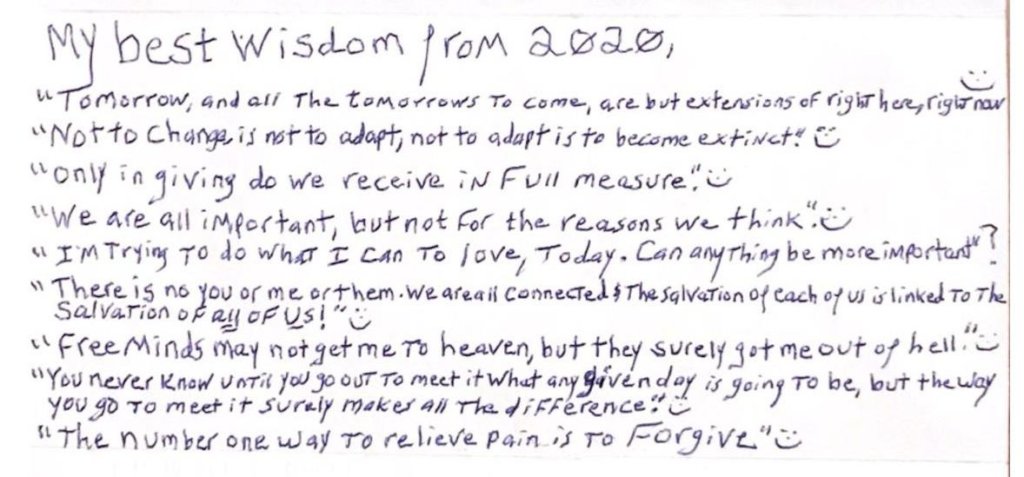 My best Wisdom from 2020,
"Tomorrow, and all The tomorrows To come, are but extensions of right here, right now
"Not to Change is not to adapt, not to adapt is to become extinct."
"Only in giving do we receive in Full measure."
"We are all important, but not for the reasons we think".
"I'm Trying To do what I can To love, Today. Can anything be more important"?
"There is no you or me or them. We are all connected & The salvation of each of us is linked To The
Salvation of all of Us!"
"Free Minds may not get me To heaven, but they surely got me out of hell."
"You never know until you go out To meet it what any given day is going To be, but the way
you go To meet it surely makes all The difference."
"The number one way To relieve pain is To Forgive"